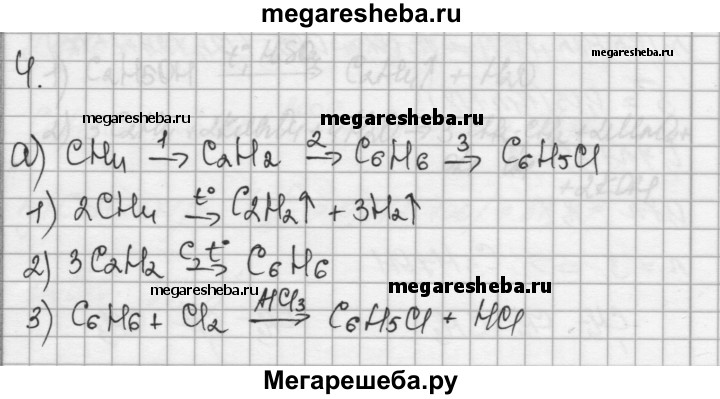 megaresheba.ru
megaresheba.ru
4.
megaresheba.ru
megaresheba.ru
а) CH4 1→ C2H2 2→ C6H6 3→ C6H5Cl
1) 2CH4 t°→ C2H2↑ + 3H2↑
2) 3C2H2 C, t°→ C6H6
megaresheba.ru
megaresheba.ru
3) C6H6 + Cl2 AlCl3→ C6H5Cl + HCl
Мегарешеба.ру